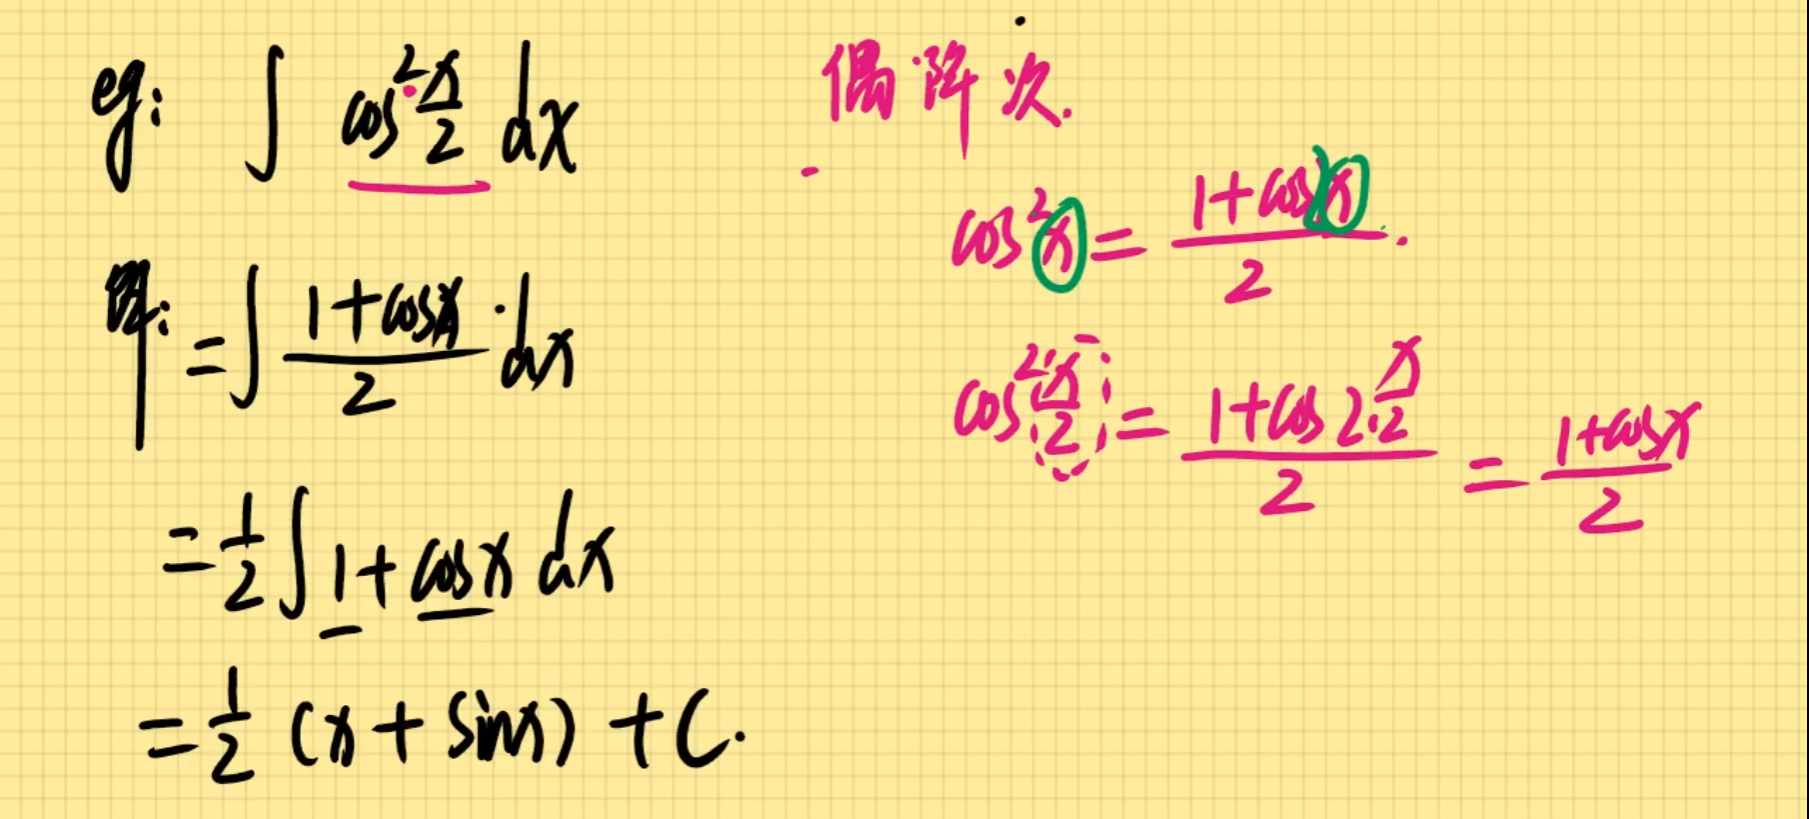 eg: ∫ cos²x/2 dx
原: = ∫ (1+cosx)/2 · dx
= 1/2 ∫ 1+cosx dx
= 1/2 (x+sinx) +C.
偶降次.
cos²x = (1+cos2x)/2.
cos²x/2 = (1+cos2·x/2)/2 = (1+cosx)/2